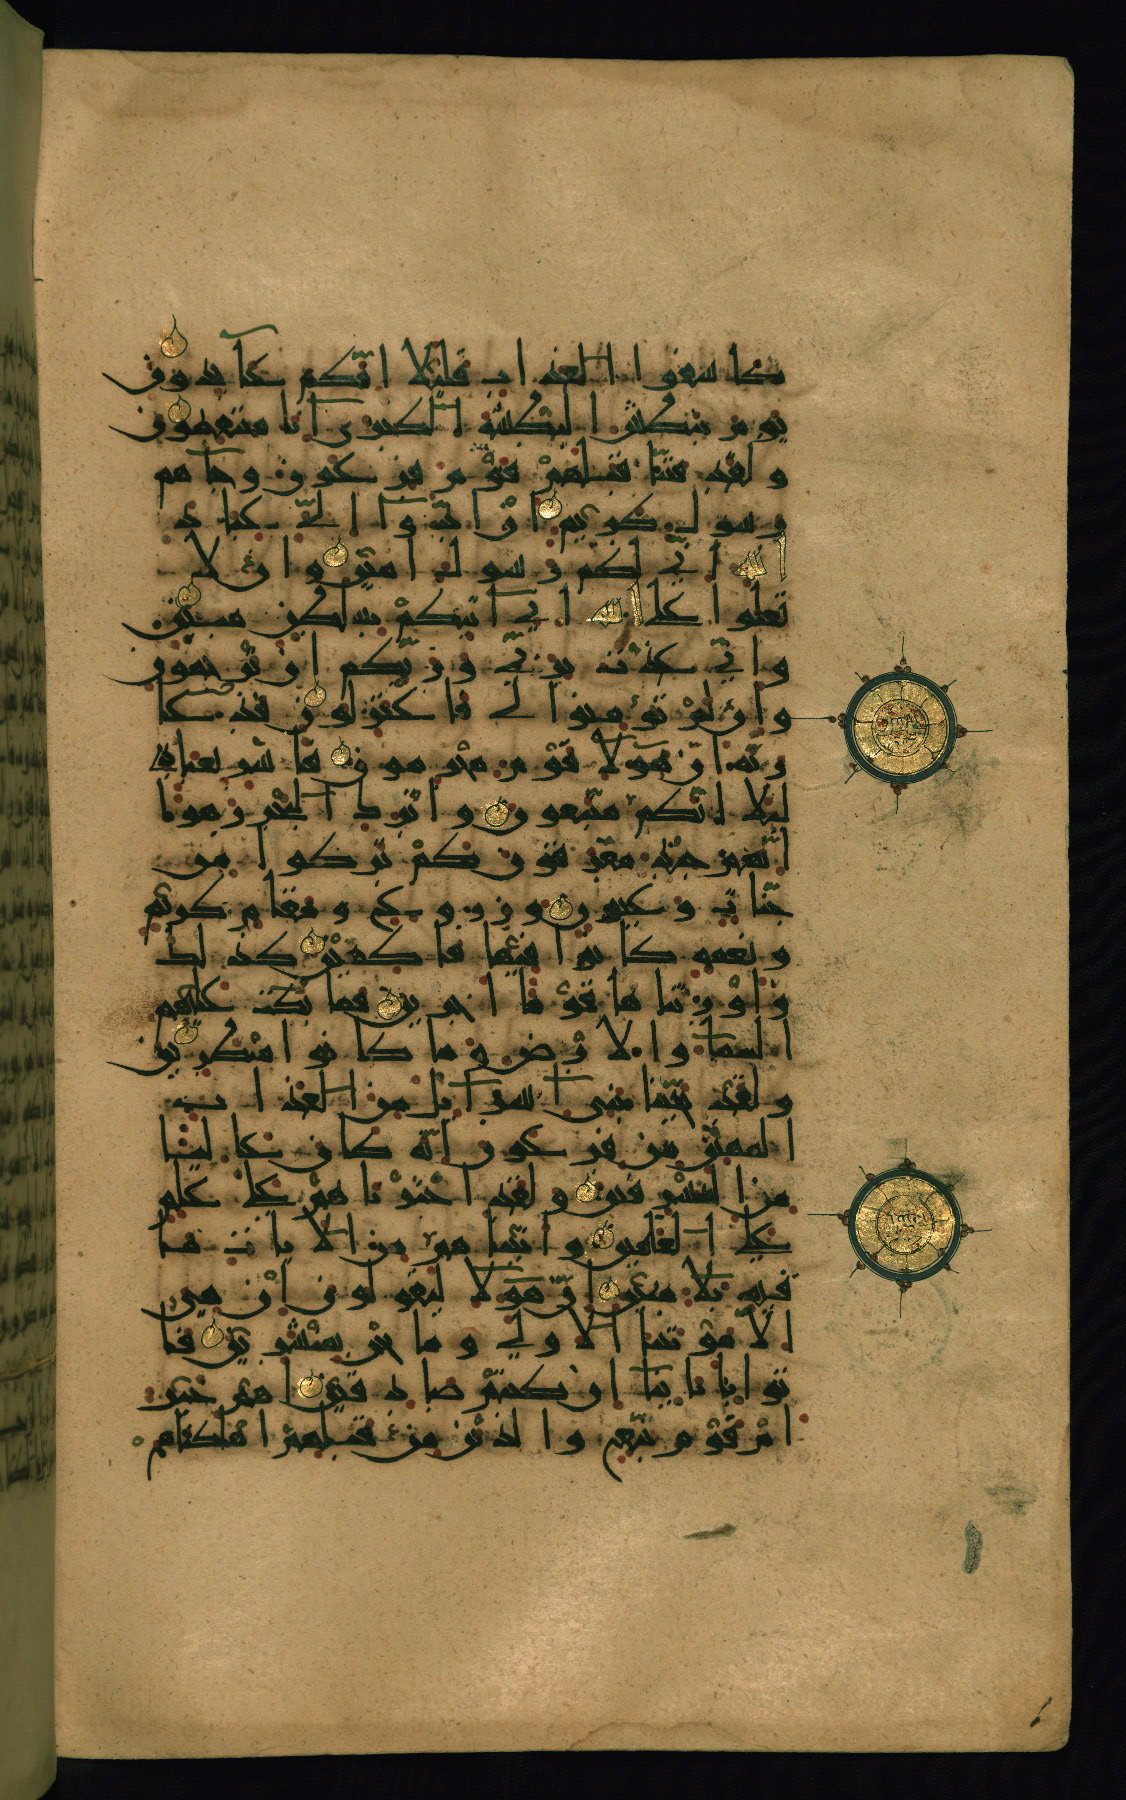 كاشفوا العذاب قليلا انّكم عآئدون
يوم نبطش البطشة الكبرى انا منتقمون
ولقد فتنّا قبلهم قوم فرعون وجآهم
رسول كريم ان ادّوآ اليّ عباد
الله انّي لكم رسول امين وان لا
تعلوا على الله انّي آتيكم بسلطن مبين
وانّي عذت بربّي وربّكم ان ترجمون
وان لم تؤمنوا لي فاعتزلون فدعا
ربّه انّ هولآ قوم مجرمون فاسر بعبادي
ليلا انّكم متّبعون واترك البحر رهوا
انّهم جند مغرقون كم تركوا من
جنّات وعيون وزروع ومقام كريم
ونعمه كانوا فيها فاكهين كذلك
واورثناها قوما اخرين فما بكت عليهم
السمآ والارض وما كانوا منظرين
ولقد نجّينا بني اسرآئل من العذاب
المهين من فرعون انّه كان عاليا
من المسرفين ولقد اخترناهم على علم
على العالمين وآتيناهم من الايات ما
فيه بلآ مبين انّ هولآ ليقولون ان هي
الّا موتتنا الاولى وما نحن بمنشرين فا
توا بابائنآ ان كنتم صادقين اهم خير
ام قوم تبّع والذين من قبلهم اهلكناهم